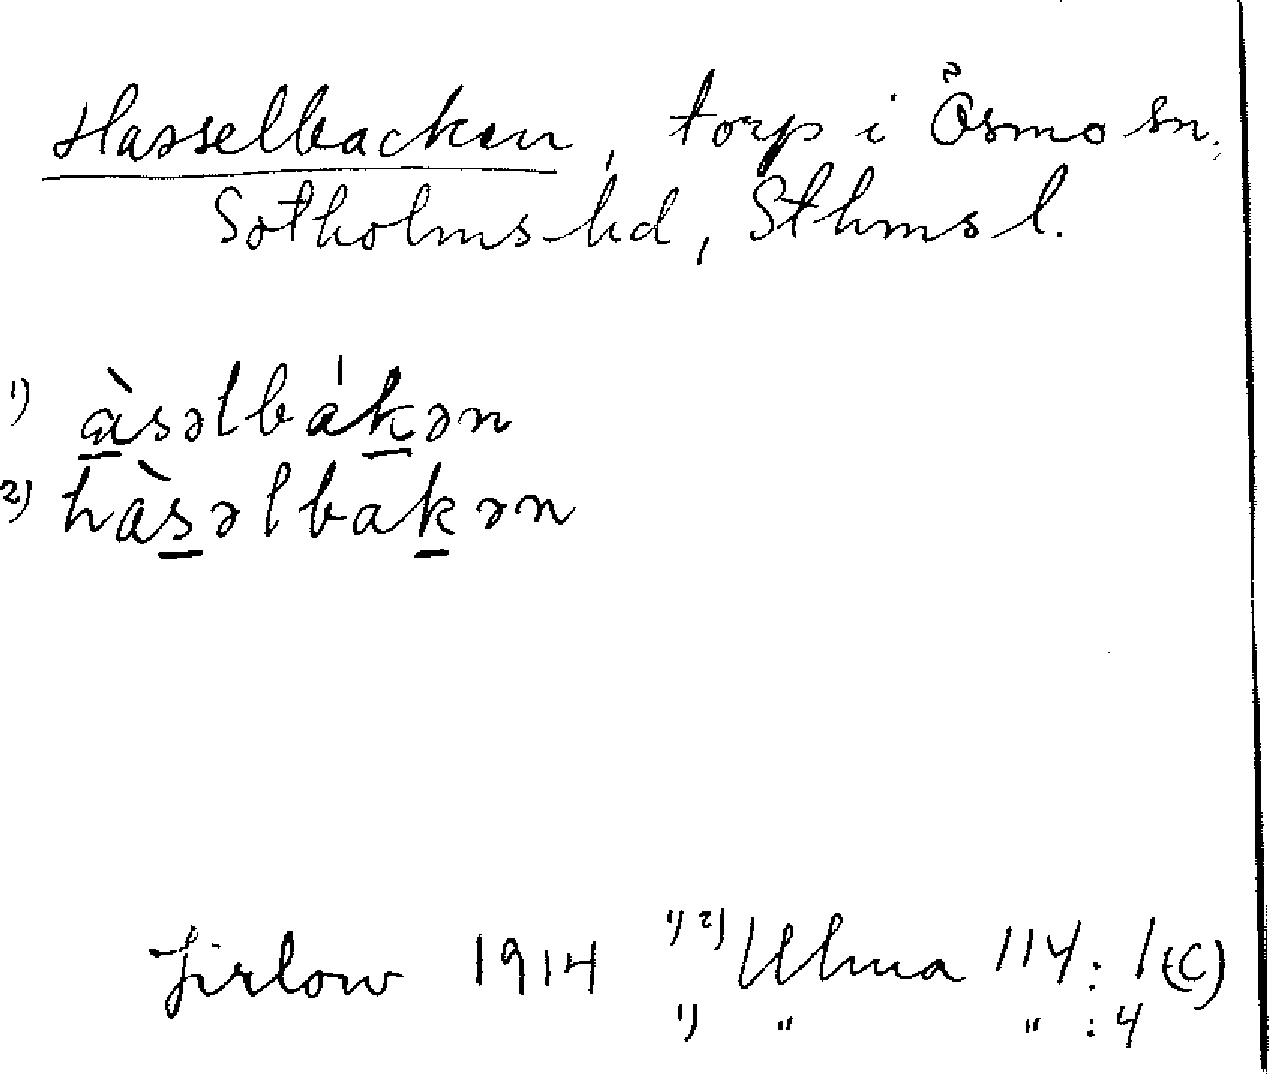 Hasselbacken, torp i Ösmo sn,
Sotholms hd, Sthms l.
1) àsəlbákən
2) hàsəlbakən
Jirlow 1914 1) 2) Ulma 114:1(C)
1) " " :4